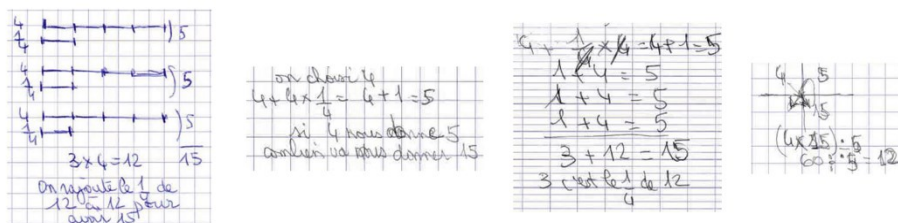 4
1/4
) 5
4
1/4
) 5
4
1/4
) 5
3 x 4 = 12  15
On rajoute le 1/4 de
12 à 12 pour
avoir 15
on choisi 4
4 + 4 x 1/4 = 4 + 1 = 5
si 4 nous donne 5
combien va nous donner 15
4 + 1/4 x 4 = 4 + 1 = 5
1 + 4 = 5
1 + 4 = 5
1 + 4 = 5
3 + 12 = 15
3 c'est le 1/4 de 12
4 5
15
(4 x 15) : 5
60 : 5 = 12